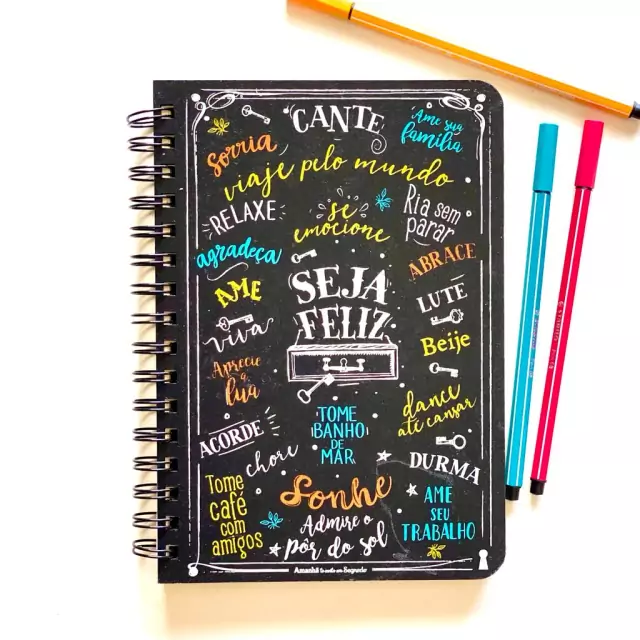 CANTE
Ame sua
família
Sorria
viaje pelo mundo
RELAXE
se
emocione
Ria sem
parar
agradeça
ABRACE
AME
SEJA
FELIZ
LUTE
viva
Beije
Aprecie
a
lua
dance
até cansar
TOME
BANHO
DE
MAR
ACORDE
chore
DURMA
Tome
café
com
amigos
Sonhe
AME
SEU
TRABALHO
Admire o
pôr do sol
Amanhã te conto um Segredo